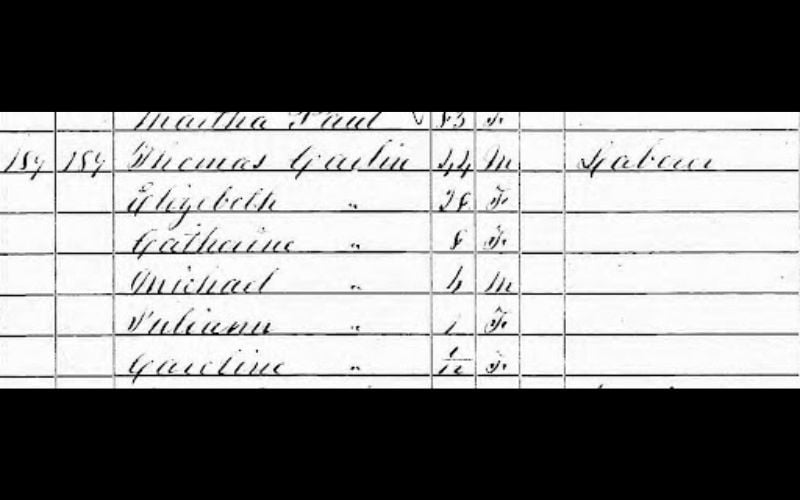 Martha Paul 83 F.
159 159 Thomas Carlin 44 M Laborer
Elizebeth " 28 F.
Catharine " 8 F.
Michael " 4 M
Juliann " 1 F.
Caroline " 1/12 F.